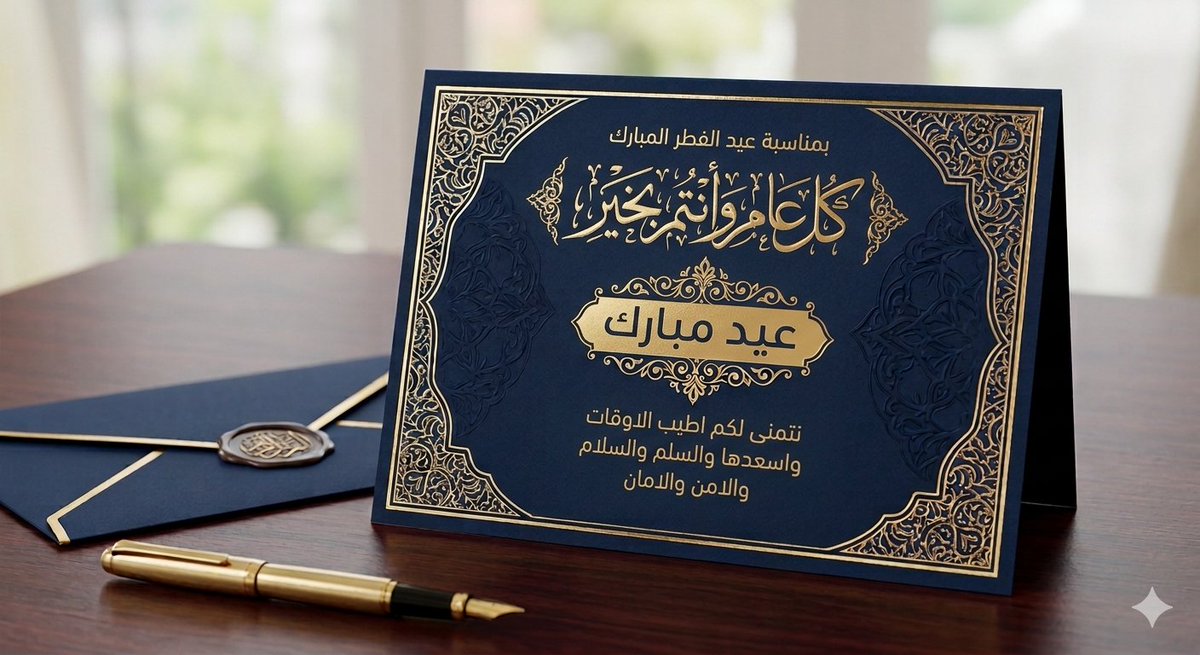 بمناسبة عيد الفطر المبارك
كُل عَام وَأنتُم بِخَيرٍ
عيد مبارك
نتمنى لكم اطيب الاوقات
واسعدها والسلم والسلام
والامن والامان